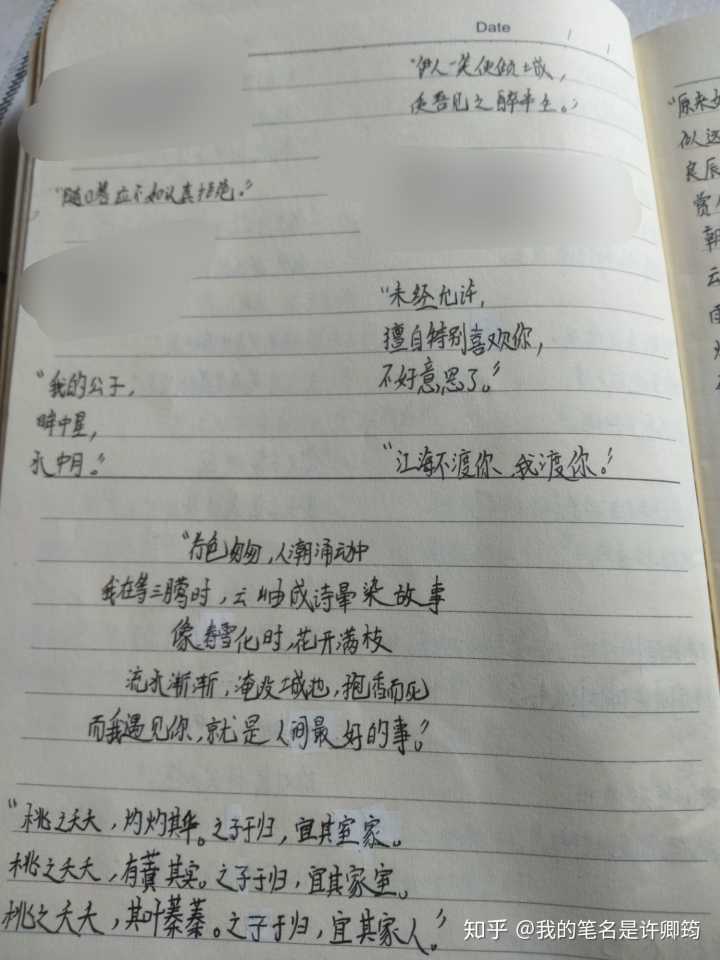 Date
"伊人一笑便倾城，
使吾见之醉半生。"
"随口答应不如认真拒绝。"
"未经允许，
擅自特别喜欢你，
不好意思了。"
"我的公子，
眸中星，
水中月。"
"江海不渡你、我渡你。"
"行色匆匆，人潮涌动中
我在等三月莺时，云岫成诗晕染故事
像春雪化时，花开满枝
流水渐渐，淹没城池，抱香而死
而我遇见你，就是人间最好的事。"
"桃之夭夭，灼灼其华。之子于归，宜其室家。
桃之夭夭，有蕡其实。之子于归，宜其家室。
桃之夭夭，其叶蓁蓁。之子于归，宜其家人。"
"原来
似
良辰
赏
朝
云
雨
知乎 @我的笔名是许卿筠